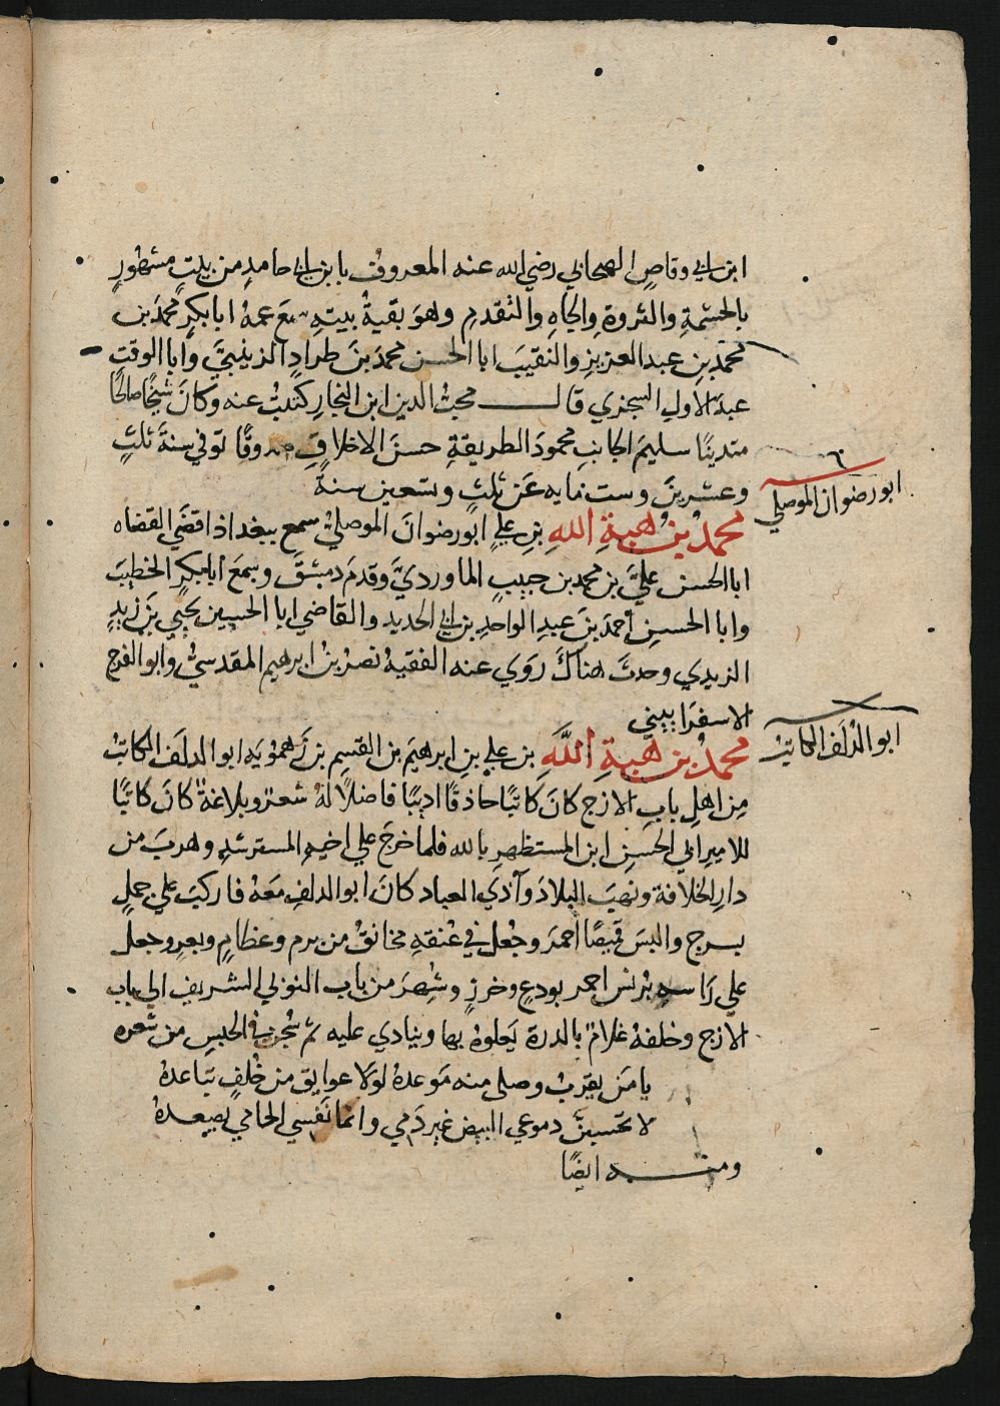 ابن ابي وقاصٍ الصحابي رضي الله عنه المعروف بابن ابي حامدٍ من بيتٍ مشهورٍ
بالحشمةِ والثروةِ والجاهِ والتقدمِ وهوَ بقيةُ بيتهِ سمعَ عمهُ ابا بكرٍ محمدَ بن
محمد بنِ عبد العزيزِ والنقيبَ ابا الحسن محمدَ بنَ طرادٍ الزينبيَّ وابا الوقتِ
عبدَ الاولِ السجزي قال محبُّ الدين ابن النجارِ كتبتُ عنه وكانَ شيخًا صالحًا
متدينًا سليمَ الجانبِ محمودَ الطريقةِ حسنَ الاخلاقِ صدوقًا توفي سنةَ ثلثٍ
وعشرينَ وست مايه عَن ثلثٍ وتسعين سنةً
ابو رضوان الموصلي
محمدُ بنُ هبةِ اللهِ بنِ عليٍ ابو رضوانَ الموصليُّ سمع ببغداذ اقضَي القضاه
ابا الحسن عليَّ بن محمد بن حبيبٍ الماورديَّ وقدمَ دمشقَ وسمعَ ابا بكرٍ الخطيبَ
وابا الحسينِ احمدَ بنَ عبدِ الواحدِ بن ابي الحديد والقاضي ابا الحسين يحيي بنَ زيدٍ
الزيدي وحدثَ هناكَ روَي عنه الفقيهُ نصرُ بنُ ابرهيم المقدسيُّ وابو الفرج
الاسفرايني
ابو الدُلَف الكاتبُ
محمدُ بن هبةِ اللَّهِ بن علي بنِ ابرهيمَ بن القسِم بن زَهمُويَه ابو الدلَف الكاتبُ
مِن اهلِ بابِ الازج كانَ كاتبًا حاذقًا اديبًا فاضلًا لهُ شعرٌ وبلاغةٌ كانَ كاتبًا
للاميرِ ابي الحسنِ ابن المستظهرِ بالله فلما خرجَ علي اخيهِ المسترشدِ وهربَ من
دارِ الخلافة ونهبَ البلادَ وآذَي العباد كانَ ابو الدلفِ معَهُ فاركبَ علي جملٍ
بسرج والبسَ قميصًا احمرَ وجُعلَ في عُنقهِ مخانقُ من برم وعظامٍ وبعرٍ وجعل
علي رَاسهِ بُرنس احمر بودعٍ وخرزٍ وشُهرَ من باب النوبي الشريفِ الي باب
الازج وخلفهُ غلامٌ بالدرة يَعلوهُ بها وينادي عليه ثم سُجن في الحبسِ من شعره
يا مَن يقربُ وصلي منه مَوعدهُ لولا عوايق من خُلفٍ تباعدهُ
لا تحسبنَّ دموعي البيض غير دَمي وانما نَفَسي الحامي يُصعدهُ
ومنه ايضًا